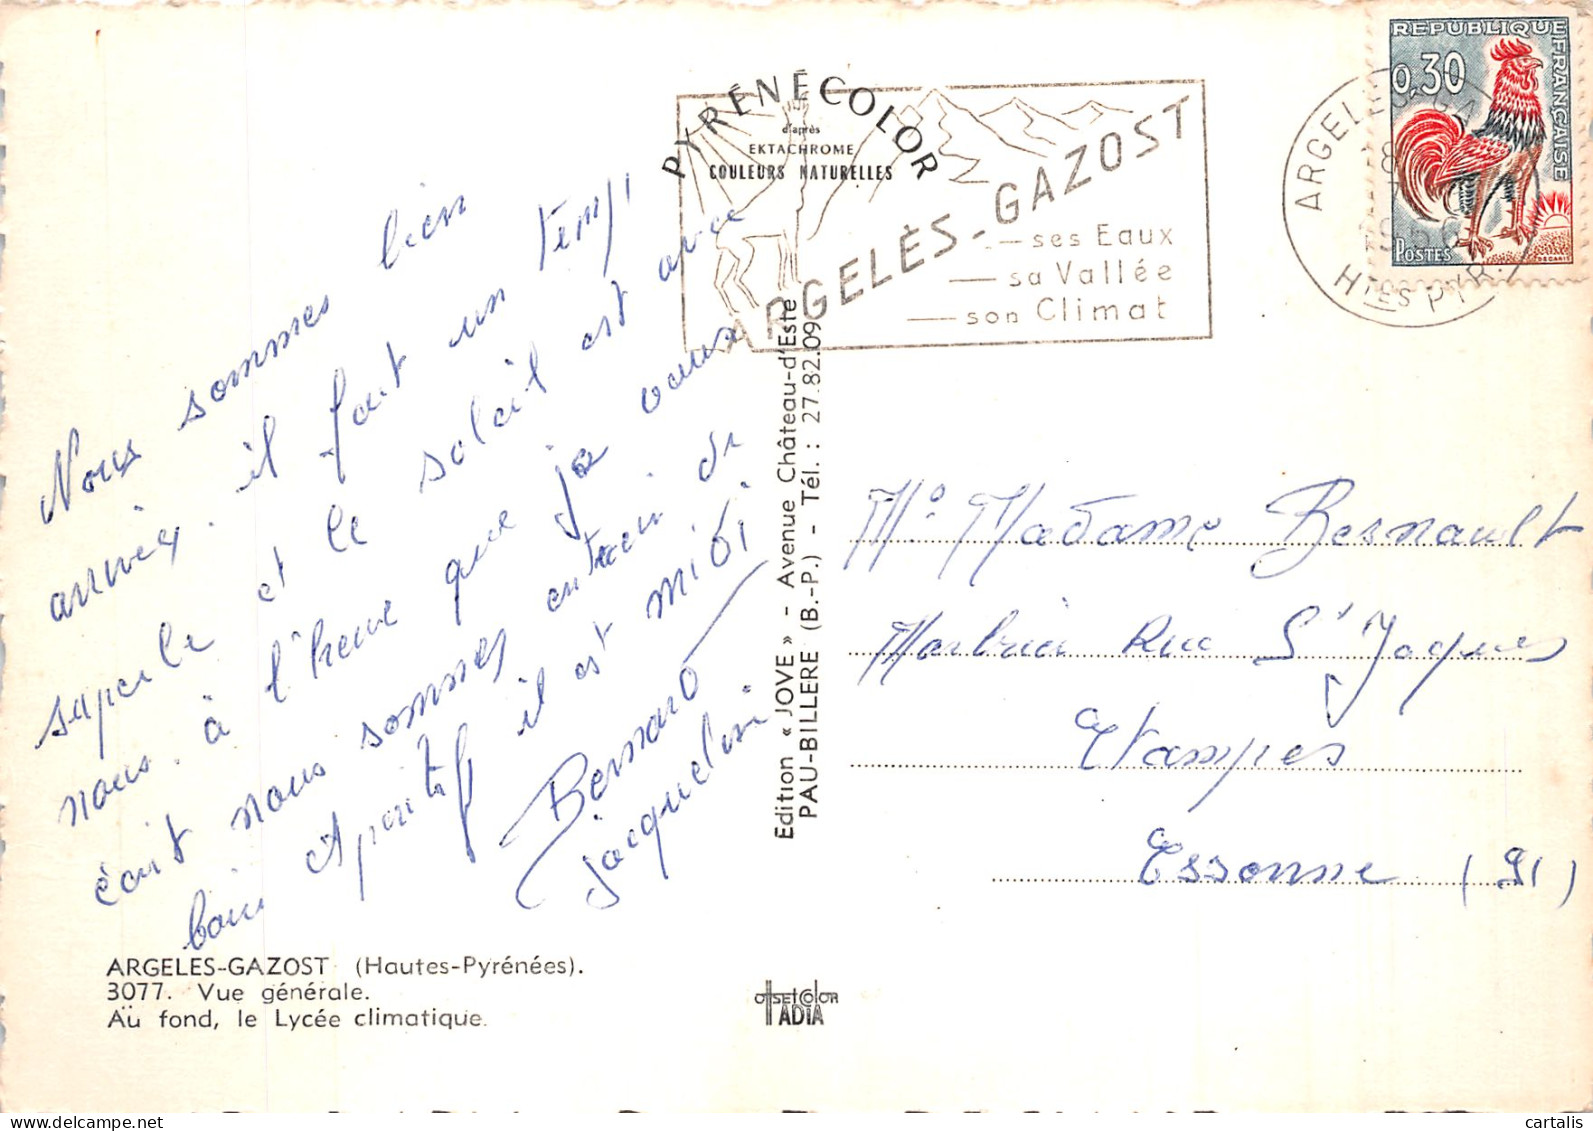 Nous sommes bien
arrivés. il fait un temps
superbe et le soleil est avec
nous. à l'heure que je vous
écrit nous sommes entrain de
boire Aperitif il est midi
Bernard
Jacqueline
ARGELES-GAZOST (Hautes-Pyrénées).
3077. Vue générale.
Au fond, le Lycée climatique.
PYRÉNÉCOLOR
d'après
EKTACHROME
COULEURS NATURELLES
ARGELÈS-GAZOST
— ses Eaux
— sa Vallée
— son Climat
Edition « JOVE » - Avenue Château-d'Este
PAU-BILLERE (B.-P.) - Tél. : 27.82.09
OFFSETCOLOR
IADIA
REPUBLIQUE FRANÇAISE
0,30
POSTES
DECARIS
ARGELES-GA
HTES PYR.
Mr Madame Besnault
Rue St Jaques
Etampes
Essonne (91)
cartalis
© www.delcampe.net